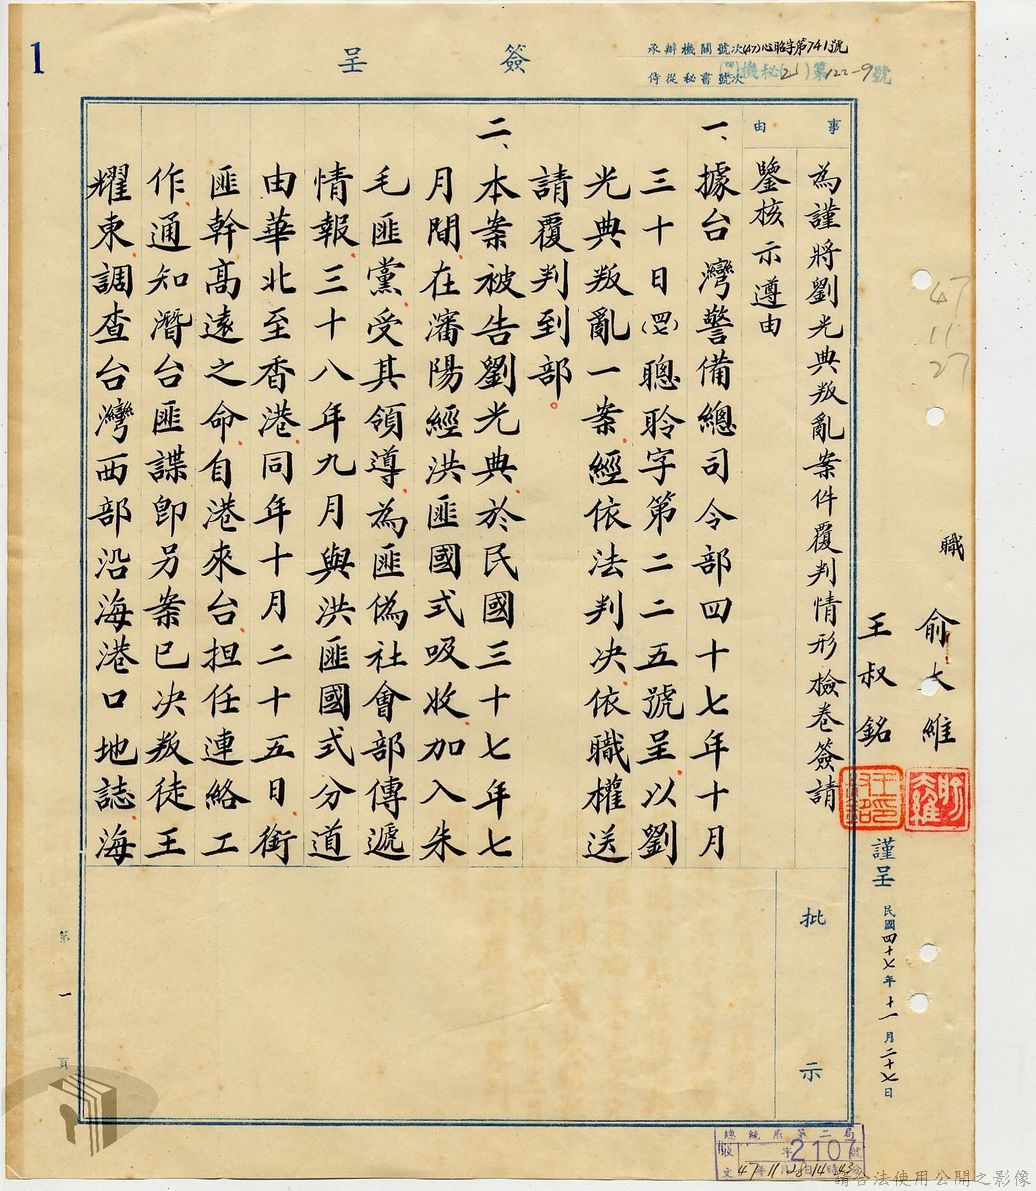 1
簽呈
承辦機關號次(47)心昭字第741號
侍從秘書號次 機秘(乙)第122-9號
職
俞大維
王叔銘
謹呈
民國四十七年十一月二十七日
47
11
27
事由
為謹將劉光典叛亂案件覆判情形檢卷簽請
鑒核示遵由
一、據台灣警備總司令部四十七年十月
三十日(四七)聰聆字第二二五號呈以劉
光典叛亂一案經依法判決依職權送
請覆判到部。
二、本案被告劉光典於民國三十七年七
月間在瀋陽經洪匪國式吸收加入朱
毛匪黨受其領導為匪偽社會部傳遞
情報三十八年九月與洪匪國式分道
由華北至香港同年十月二十五日銜
匪幹高遠之命自港來台担任連絡工
作通知潛台匪諜即另案已決叛徒王
耀東調查台灣西部沿海港口地誌海
批示
第一頁
總統府第二局
收文 字2107號
47年11月28日14時43分
請合法使用公開之影像